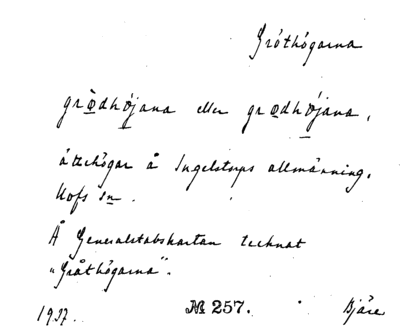 Gróthögarna
grōdhōjana eller grōdhōjana,
ättehögar å Ingelstorps allmänning,
Hofs sn.
Å Generalstabskartan tecknat
„Gråthögarna".
1937. № 257. Bjäre